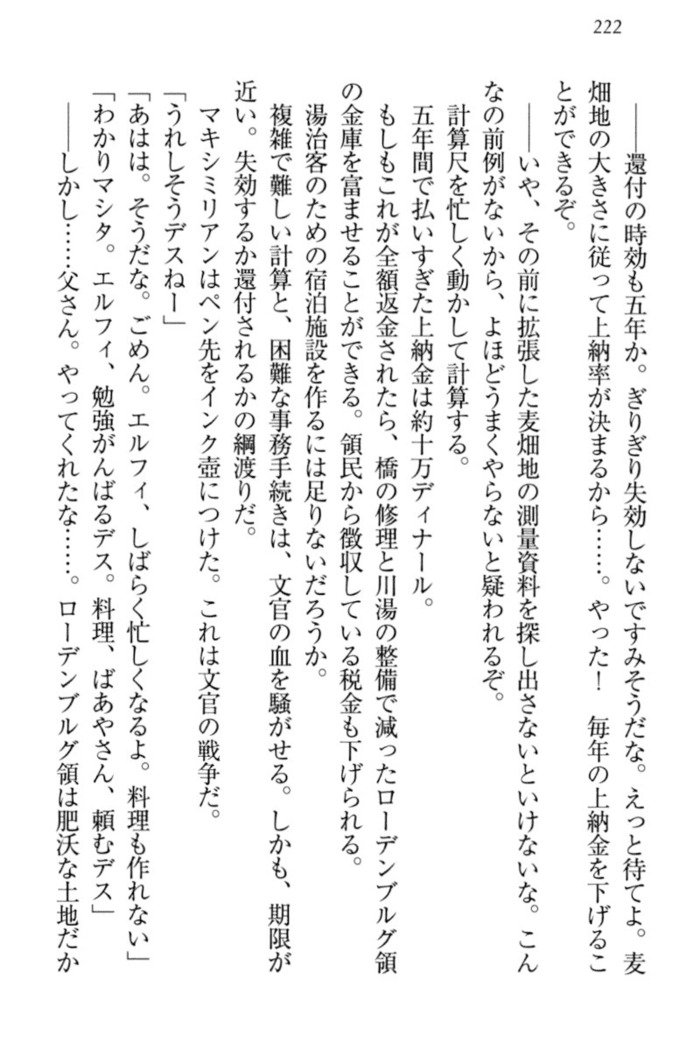 222
――還付の時効も五年か。ぎりぎり失効しないですみそうだな。えっと待てよ。麦
畑地の大きさに従って上納率が決まるから……。やった！　毎年の上納金を下げるこ
とができるぞ。
――いや、その前に拡張した麦畑地の測量資料を探し出さないといけないな。こん
なの前例がないから、よほどうまくやらないと疑われるぞ。
計算尺を忙しく動かして計算する。
五年間で払いすぎた上納金は約十万ディナール。
もしもこれが全額返金されたら、橋の修理と川湯の整備で減ったローデンブルグ領
の金庫を富ませることができる。領民から徴収している税金も下げられる。
湯治客のための宿泊施設を作るには足りないだろうか。
複雑で難しい計算と、困難な事務手続きは、文官の血を騒がせる。しかも、期限が
近い。失効するか還付されるかの綱渡りだ。
マキシミリアンはペン先をインク壺につけた。これは文官の戦争だ。
「うれしそうデスねー」
「あはは。そうだな。ごめん。エルフィ、しばらく忙しくなるよ。料理も作れない」
「わかりマシタ。エルフィ、勉強がんばるデス。料理、ばあやさん、頼むデス」
――しかし……父さん。やってくれたな……。ローデンブルグ領は肥沃な土地だか